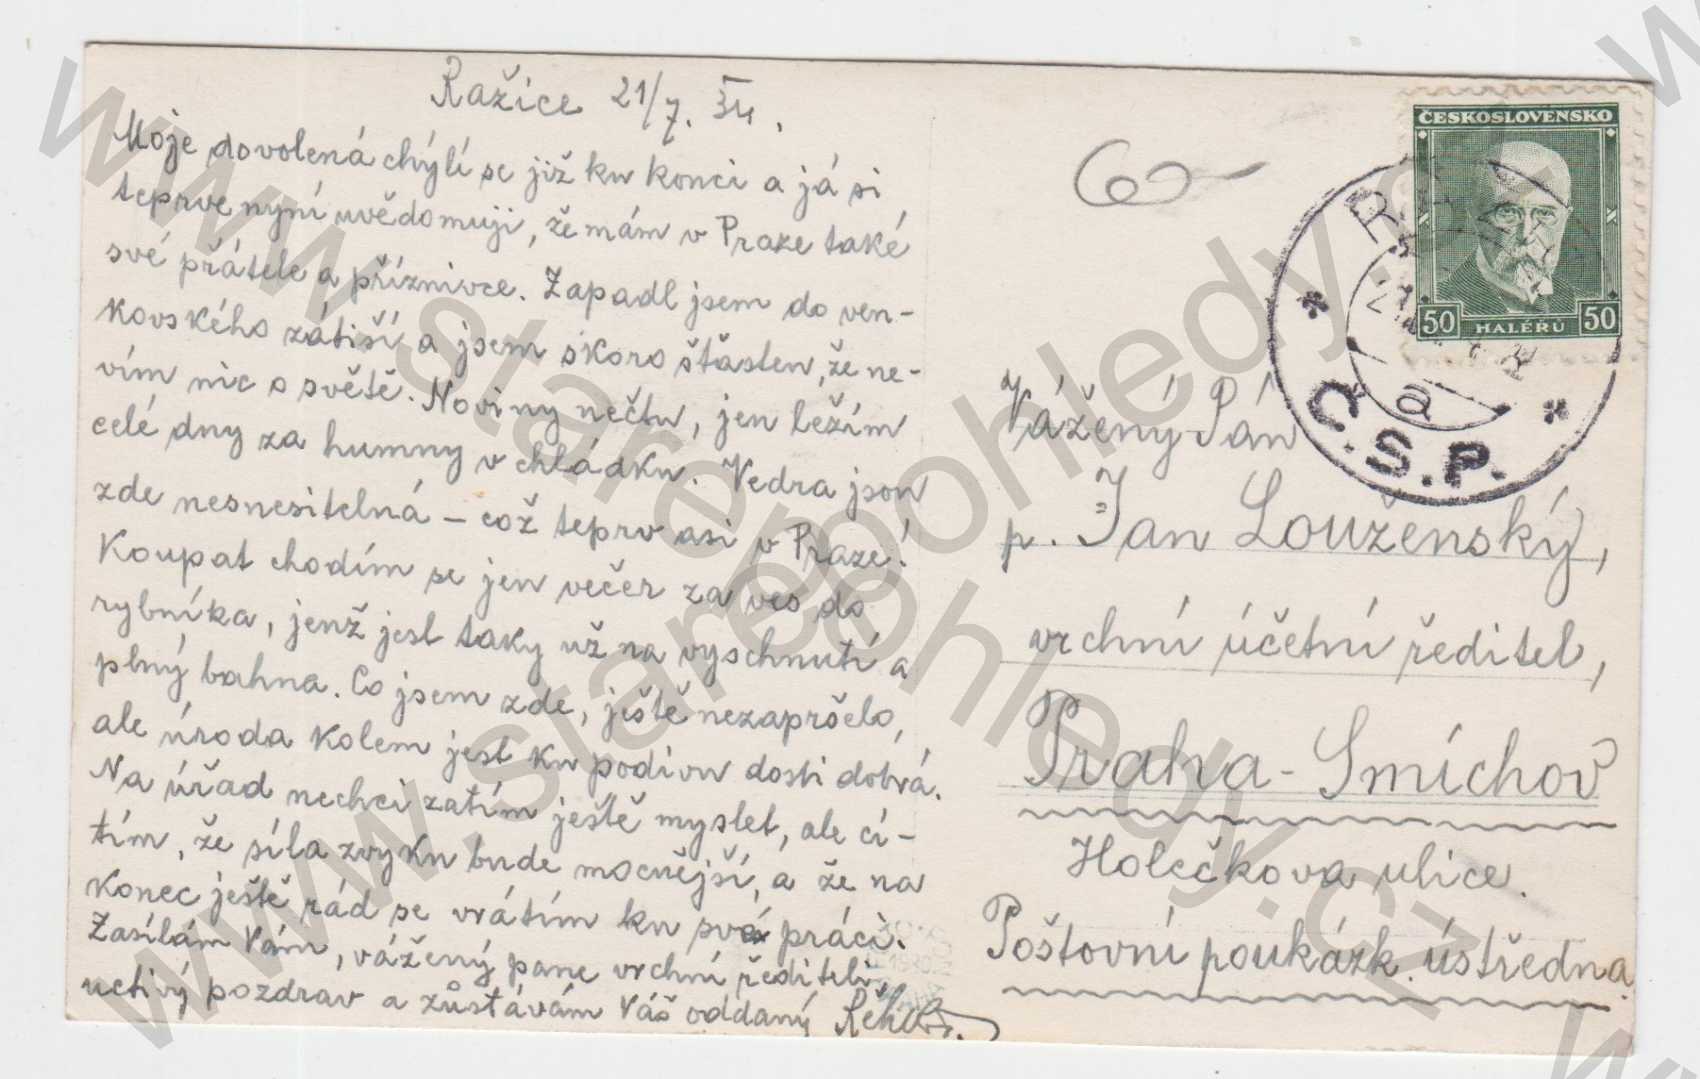 Ražice 21/7. 34.
Moje dovolená chýlí se již ku konci a já si
teprve nyní uvědomuji, že mám v Praze také
své přátele a příznivce. Zapadl jsem do ven-
kovského zátiší a jsem skoro šťasten, že ne-
vím nic o světě. Noviny nečtu, jen ležím
celé dny za humny v chládku. Vedra jsou
zde nesnesitelná – což teprv asi v Praze!
Koupat chodím se jen večer za ves do
rybníka, jenž jest taky už na vyschnutí a
plný bahna. Co jsem zde, ještě nezapršelo,
ale úroda kolem jest ku podivu dosti dobrá.
Na úřad nechci zatím ještě myslet, ale cí-
tím, že síla zvyku bude mocnější, a že na
konec ještě rád se vrátím ku své práci.
Zasílám Vám, vážený pane vrchní řediteli,
uctivý pozdrav a zůstávám Váš oddaný
ČESKOSLOVENSKO
50 HALÉŘŮ 50
a
Č.S.P.
Vážený Pán
p. Jan Louženský,
vrchní účetní ředitel,
Praha - Smíchov
Holečkova ulice.
Poštovní poukázk. ústředna.
www.starepohledy.cz
www.starepohledy.cz